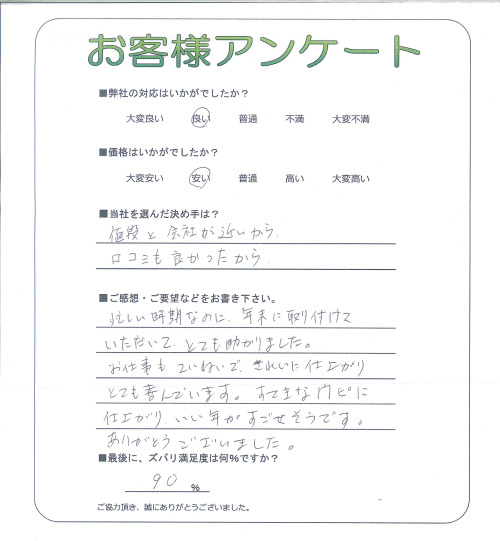 お客様アンケート
■弊社の対応はいかがでしたか？
大変良い　良い　普通　不満　大変不満
■価格はいかがでしたか？
大変安い　安い　普通　高い　大変高い
■当社を選んだ決め手は？
値段と会社が近いから.
口コミも良かったから.
■ご感想・ご要望などをお書き下さい。
忙しい時期なのに、年末に取り付けて
いただいて、とても助かりました。
お仕事もていねいで、きれいに仕上がり
とても喜んでいます。すてきなリビに
仕上がり、いい年がすごせそうです。
ありがとうございました。
■最後に、ズバリ満足度は何%ですか？
90 %
ご協力頂き、誠にありがとうございました。